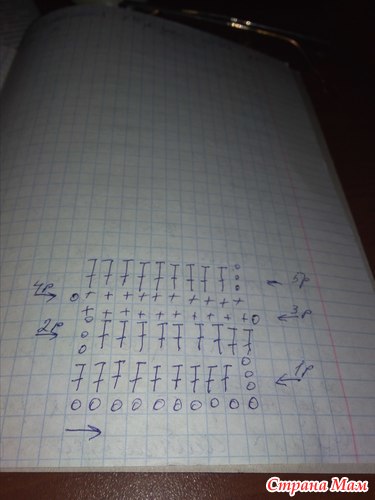 4р
5р
3р
2р
1р
Страна Мам